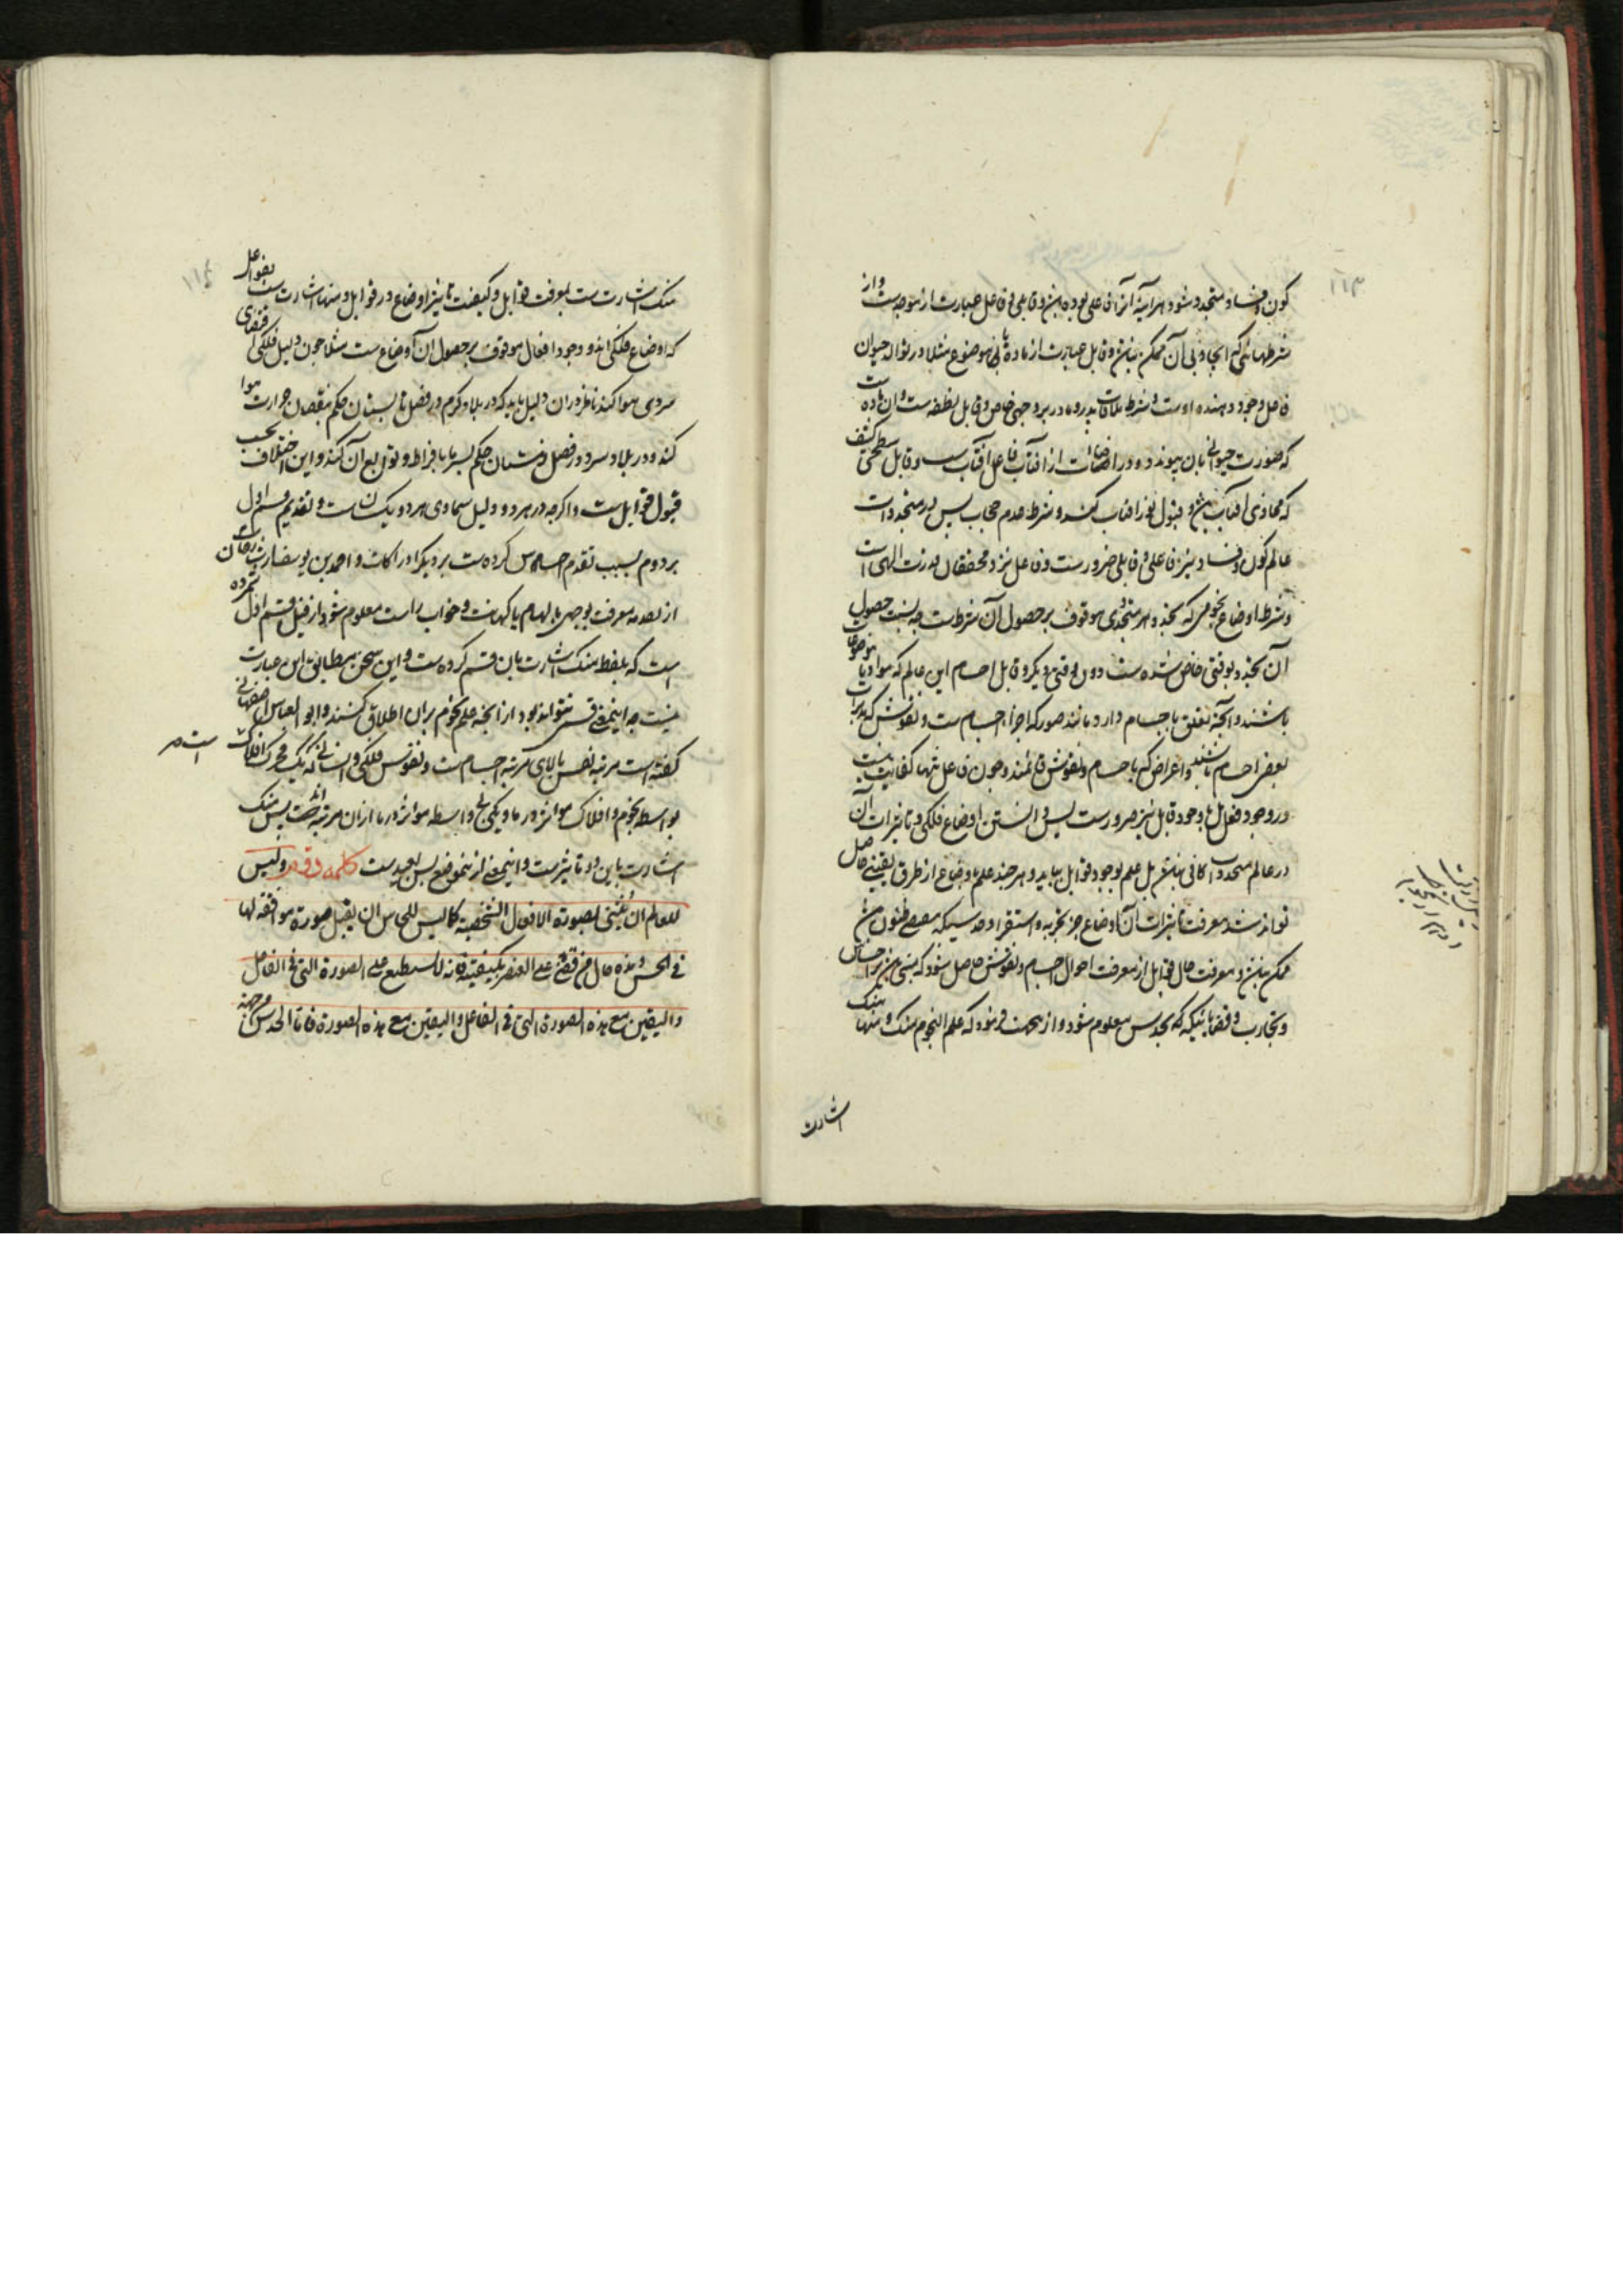 ۱۱۳
کون و فساد متجدد شود هر آینه آنرا فاعلی بوده باشد و قابلی و فاعل عبارت از موجدست و از
شرطهائی که ایجاد بی آن ممکن نباشد و قابل عبارت از ماده یا موضوع مثلا در توالد حیوان
فاعل وجود دهنده اوست و شرط ملاقات پدر و مادر بر وجهی خاص و قابل نطفه است و آن ماده است
که صورت حیوانی بان پیوندد و در اضاءات از آفتاب فاعل آفتاب است و قابل سطحی کثیف
که محاذی آفتاب باشد و قبول نور آفتاب کند و شرط عدم حجاب پس در متجددات
عالم کون و فساد نیز فاعلی و قابلی ضرورست و فاعل نزد محققان قدرت الهی است
و شرط اوضاع نجومی که تجدد هر متجددی موقوف بر حصول آن شرطست چه بسبب حصول
آن تجدد بوقتی خاص شده است دون وقتی دیگر و قابل اجسام این عالم که مواد یا موضوعات
باشند و آنچه تعلق باجسام دارد مانند صور که اجزاء اجسام است و نفوس که مدبرات
بعضی اجسام باشند و اعراض که باجسام و نفوس قائمند و چون فاعل تنها کفایت نیست
در وجود فعل تا وجود قابل نیز ضرورست پس دانستن اوضاع فلکی و تاثیرات آن
در عالم متجددات کافی نباشد بل علم بوجود قوابل بباید و هر چند علم باوضاع از طرق یقینی حاصل
تواند شد معرفت تاثیرات آن اوضاع جز بتجربه و استقرا و حدسی که مقتضی ظنون باشد
ممکن نباشد و معرفت حال قوابل از معرفت احوال اجسام و نفوس حاصل شود که مبنی باشد بر احساس
و تجارب و قضایائیکه که بحدس معلوم شود و از اینجهت فرموده که علم النجوم منک و منها
اشارت
۱۱۴
منک اشارت ست بمعرفت قوابل و کیفیت تاثیر اوضاع در قوابل و منها اشارت ست بفواعل
که اوضاع فلکی اند و وجود افعال موقوف بر حصول آن اوضاع ست مثلا چون دلیل فلکی اقتضای
سردی هوا کند ناظر در ان دلیل باید که در بلاد گرم و در فصل تابستان حکم بنقصان حرارت هوا
کند و در بلاد سرد و در فصل زمستان حکم بسرما بافراط و توابع آن کند و این اختلاف بحسب
قبول قوابل ست و اگرچه در هر دو دلیل سماوی هر دو یکسان است و تقدیم قسم اول
بر دوم بسبب تقدم احساس کرده ست بر دیگر ادراکات و احمد بن یوسف
از مقدمه معرفت بوجهی بالهام یا کهانت و خواب راست معلوم شود از قبیل قسم اول شمرده
است که بلفظ منک اشارت بان قسم کرده ست و این سخن مطابق این عبارت
نیست چه اینمعنی قسمی نتواند بود از آنچه علم نجوم بران اطلاق کنند و ابو العباس اصفهانی
گفته است مرتبه نفس بالای مرتبه اجسام ست و نفوس فلکی و انسانی که یک محرک افلاک است
بواسطه نجوم و افلاک مؤثر در ما و یکی بی واسطه مؤثر در ما از ان مرتبه است پس منک
اشارت باین دو تاثیرست و اینمعنی از ینموضع بس بعیدست کلمه دوم و لیس
للعالم ان ینبئی بصورة الافعال الشخصیة کما لیس للحاس ان یقبل صورة موافقة لها
فی الحس و هذه حال من قضی علی العنصر بکیفیته فانه لا یستطیع علی الصورة التی فی الفاعل
و الیقین مع هذه الصورة التی فی الفاعل و الیقین مع هذه الصورة فاما الحدس من جهة